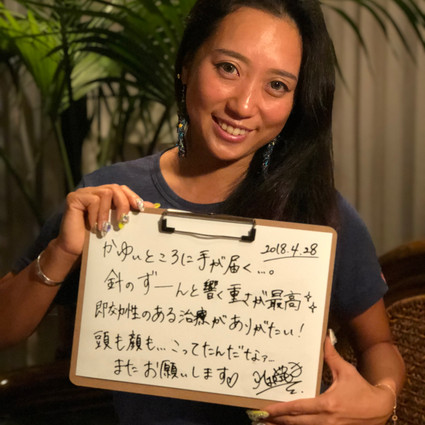 2018.4.28
かゆいところに手が届く…。
針のずーんと響く重さが最高
即効性のある治療がありがたい!
頭も顔も…こってたんだなァ…
またお願いします♡